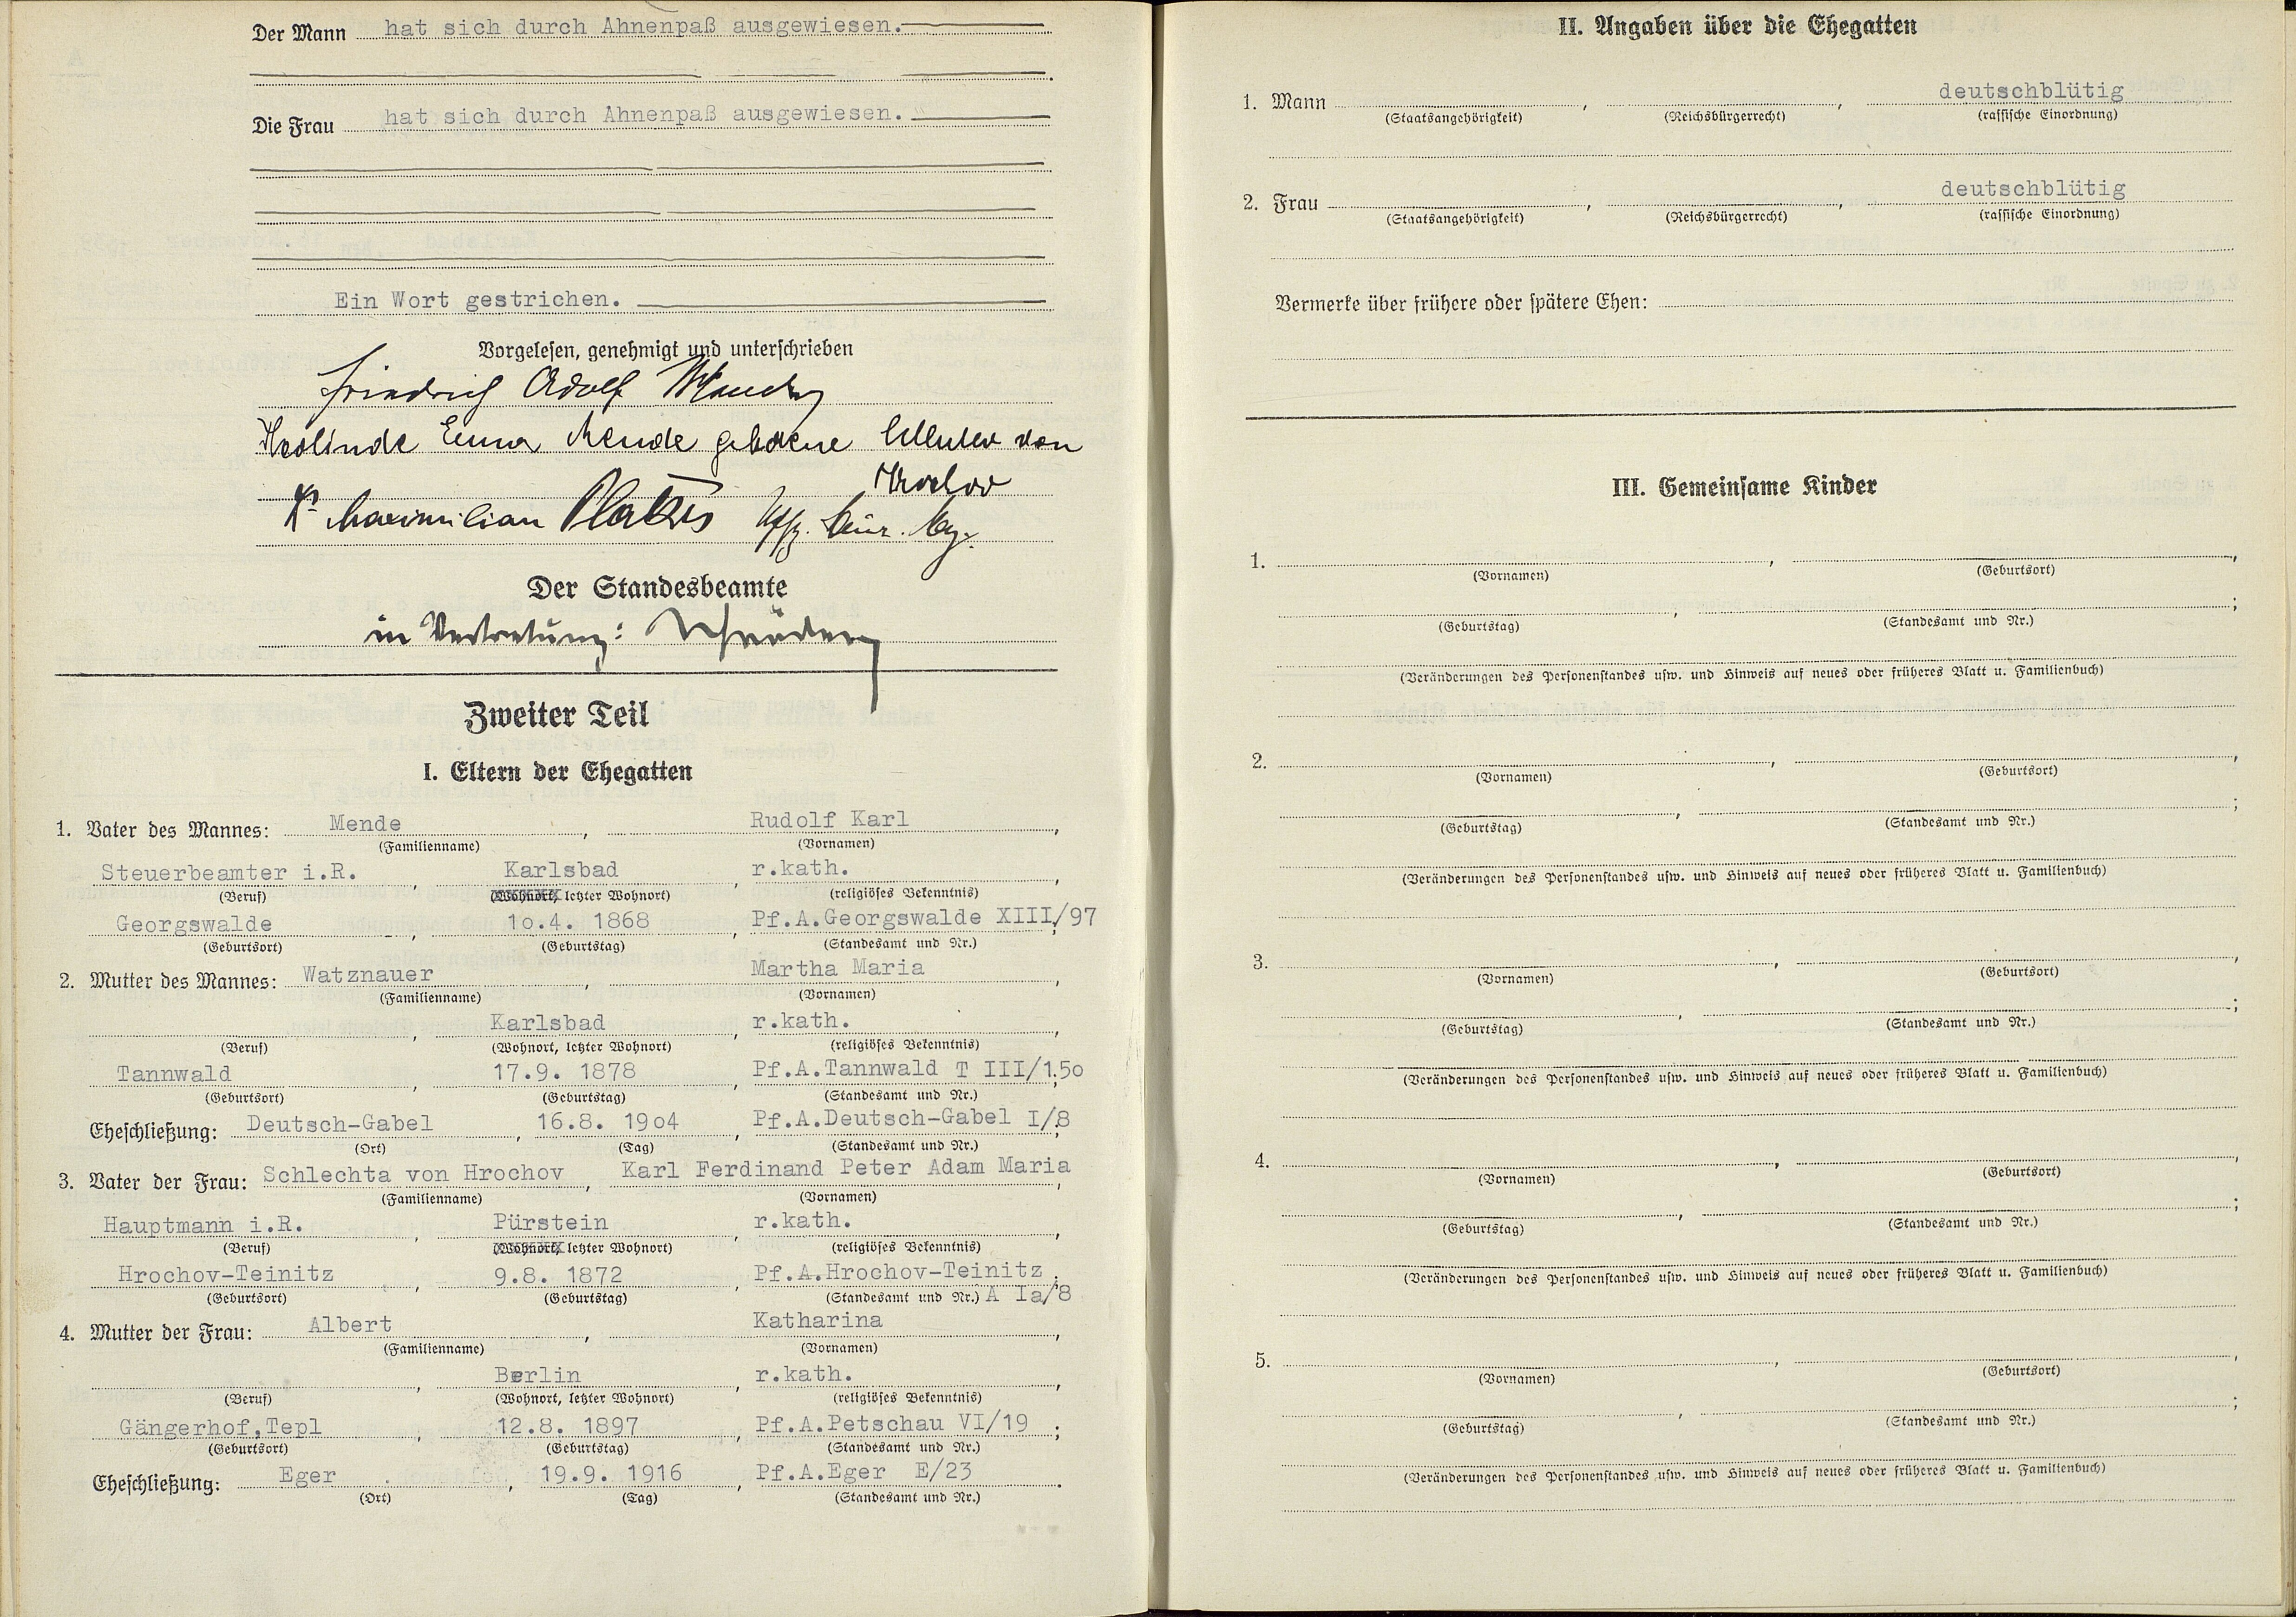 Der Mann hat sich durch Ahnenpaß ausgewiesen.
Die Frau hat sich durch Ahnenpaß ausgewiesen.
Ein Wort gestrichen.
Vorgelesen, genehmigt und unterschrieben
Friedrich Adolf
Herlinde Erna Mende geborene von
Maximilian
Der Standesbeamte
in Vertretung:
Zweiter Teil
I. Eltern der Ehegatten
1. Vater des Mannes: Mende, Rudolf Karl,
(Familienname) (Vornamen)
Steuerbeamter i.R., Karlsbad, r.kath.,
(Beruf) (Wohnort, letzter Wohnort) (religiöses Bekenntnis)
Georgswalde, 1o.4. 1868, Pf.A.Georgswalde XIII/97;
(Geburtsort) (Geburtstag) (Standesamt und Nr.)
2. Mutter des Mannes: Watznauer, Martha Maria,
(Familienname) (Vornamen)
, Karlsbad, r.kath.,
(Beruf) (Wohnort, letzter Wohnort) (religiöses Bekenntnis)
Tannwald, 17.9. 1878, Pf.A.Tannwald T III/15o;
(Geburtsort) (Geburtstag) (Standesamt und Nr.)
Eheschließung: Deutsch-Gabel, 16.8. 19o4, Pf.A.Deutsch-Gabel I/8
(Ort) (Tag) (Standesamt und Nr.)
3. Vater der Frau: Schlechta von Hrochov, Karl Ferdinand Peter Adam Maria,
(Familienname) (Vornamen)
Hauptmann i.R., Pürstein, r.kath.,
(Beruf) (Wohnort, letzter Wohnort) (religiöses Bekenntnis)
Hrochov-Teinitz, 9.8. 1872, Pf.A.Hrochov-Teinitz;
(Geburtsort) (Geburtstag) (Standesamt und Nr.) A Ia/8
4. Mutter der Frau: Albert, Katharina,
(Familienname) (Vornamen)
, Berlin, r.kath.,
(Beruf) (Wohnort, letzter Wohnort) (religiöses Bekenntnis)
Gängerhof,Tepl, 12.8. 1897, Pf.A.Petschau VI/19;
(Geburtsort) (Geburtstag) (Standesamt und Nr.)
Eheschließung: Eger, 19.9. 1916, Pf.A.Eger E/23.
(Ort) (Tag) (Standesamt und Nr.)
II. Angaben über die Ehegatten
1. Mann , , deutschblütig
(Staatsangehörigkeit) (Reichsbürgerrecht) (rassische Einordnung)
2. Frau , , deutschblütig
(Staatsangehörigkeit) (Reichsbürgerrecht) (rassische Einordnung)
Vermerke über frühere oder spätere Ehen:
III. Gemeinsame Kinder
1. , ,
(Vornamen) (Geburtsort)
, ;
(Geburtstag) (Standesamt und Nr.)
(Veränderungen des Personenstandes usw. und Hinweis auf neues oder früheres Blatt u. Familienbuch)
2. , ,
(Vornamen) (Geburtsort)
, ;
(Geburtstag) (Standesamt und Nr.)
(Veränderungen des Personenstandes usw. und Hinweis auf neues oder früheres Blatt u. Familienbuch)
3. , ,
(Vornamen) (Geburtsort)
, ;
(Geburtstag) (Standesamt und Nr.)
(Veränderungen des Personenstandes usw. und Hinweis auf neues oder früheres Blatt u. Familienbuch)
4. , ,
(Vornamen) (Geburtsort)
, ;
(Geburtstag) (Standesamt und Nr.)
(Veränderungen des Personenstandes usw. und Hinweis auf neues oder früheres Blatt u. Familienbuch)
5. , ,
(Vornamen) (Geburtsort)
, ;
(Geburtstag) (Standesamt und Nr.)
(Veränderungen des Personenstandes usw. und Hinweis auf neues oder früheres Blatt u. Familienbuch)